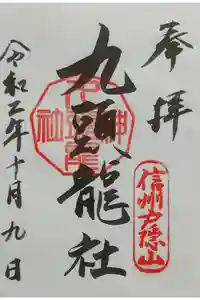 奉拝
信州戸隠山
九頭龍社
令和二年十月九日